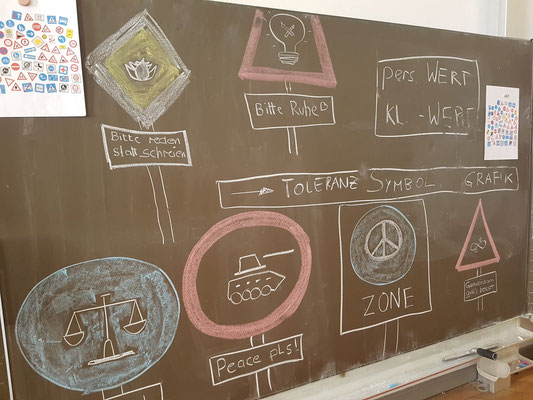 Bitte reden
statt schreien
Bitte Ruhe
pers. WERT
KL. - WERT
TOLERANZ SYMBOL GRAFIK
Peace pls!
ZONE